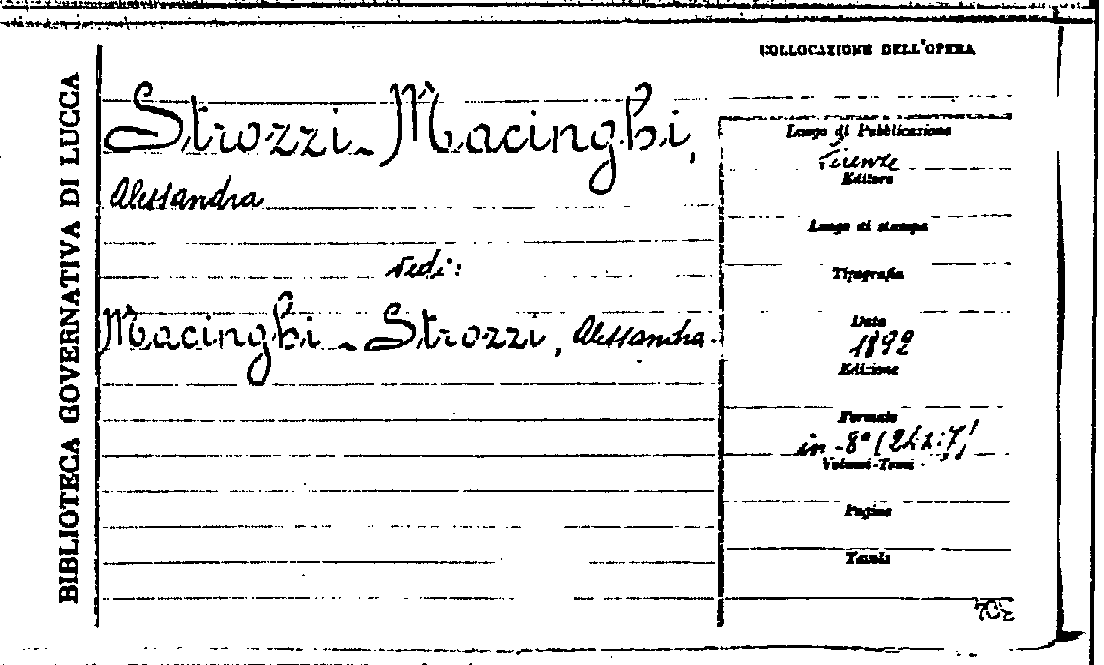 BIBLIOTECA GOVERNATIVA DI LUCCA
COLLOCAZIONE DELL'OPERA
Strozzi-Macinghi,
Alessandra
vedi:
Macinghi-Strozzi, Alessandra.
Luogo di Pubblicazione
Firenze
Editore
Luogo di stampa
Tipografia
Data
1892
Edizione
Formato
in-8°
Volumi-Tomi
Pagine
Tavole